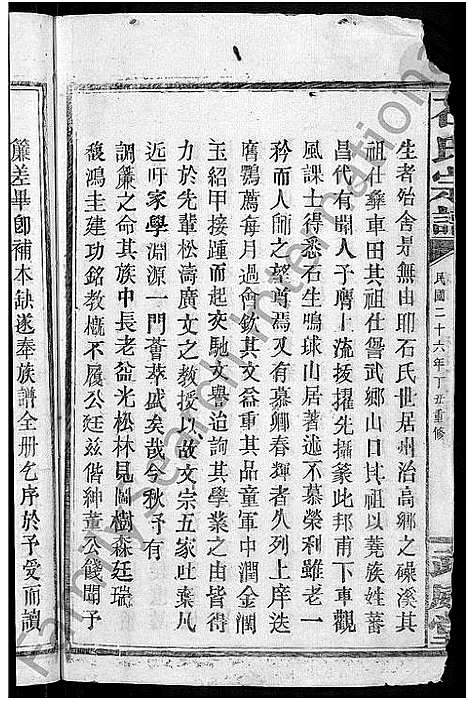 石氏宗譜
民國二十六年丁丑重修
生者殆舍是無由耶石氏世居州治高鄉之磉溪其
祖仕彝車田其祖仕誉武鄉山口其祖以蕘族姓蕃
昌代有聞人予膺上流拔擢先攝篆此邦甫下車觀
風課士得悉石生鳴球山居著述不慕榮利雖老一
矜而人師之望尊焉又有慕卿春輝者久列上庠迭
膺鶚薦每月過會欽其文益重其品童軍中潤金潤
玉紹甲接踵而起奕馳文譽追詢其學業之由皆得
力於先輩松濤廣文之教授以故文宗五家吐棄凡
近吁家學淵源一門薈萃盛矣哉今秋予有
調簾之命其族中長老益光松林見國樹森廷瑞
馥鴻圭建功銘教概不履公廷茲偕紳董公餞聞予
簾差畢卽補本缺遂奉族譜全册乞序於予受而讀
Family Search International